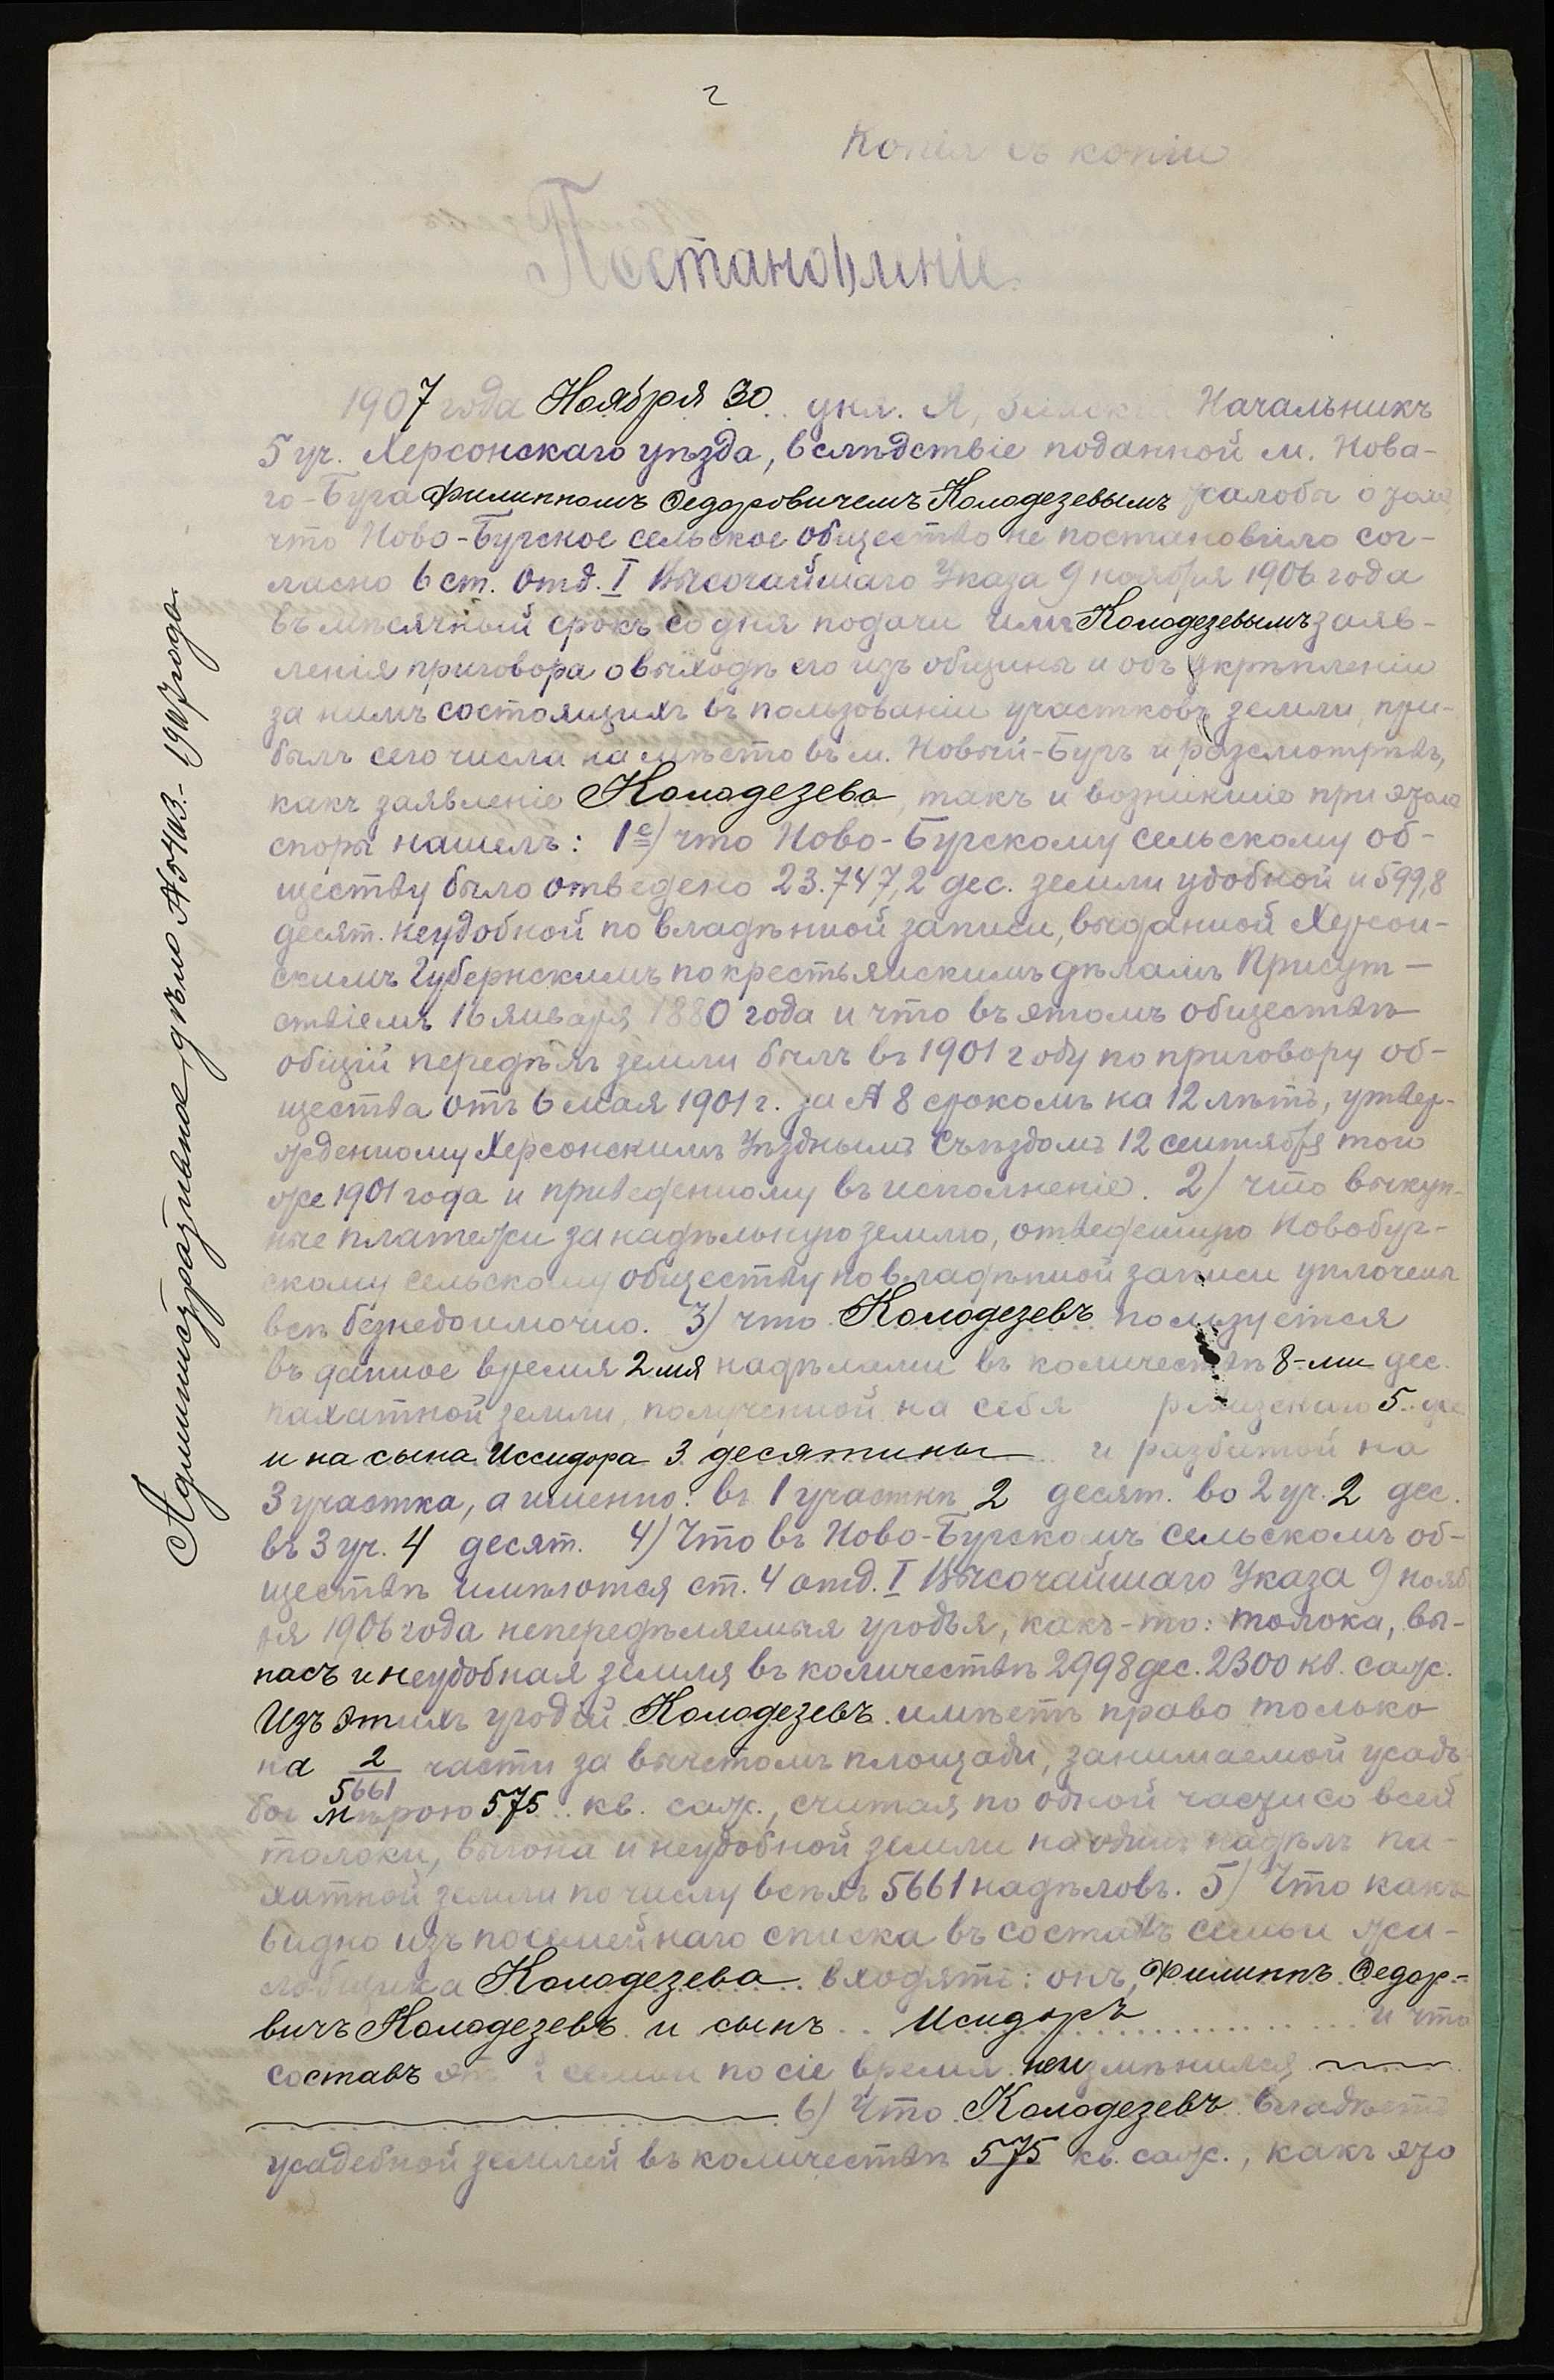 2
Копія съ копіи
Постановленіе.
1907 года Ноября 30 дня. Я, Земскій Начальникъ
5 уч. Херсонскаго уѣзда, вслѣдствіе поданной м. Нова-
го-Буга Филиппомъ Ѳедоровичемъ Колодезевымъ жалобы о томъ,
что Ново-Бугское сельское общество не постановило сог-
ласно 6 ст. Отд. I Высочайшаго Указа 9 ноября 1906 года
въ мѣсячный срокъ со дня подачи имъ Колодезевымъ заяв-
ленія приговора о выходѣ его изъ общины и объ укрѣпленіи
за нимъ состоящихъ въ пользованіи участковъ земли, при-
былъ сего числа на мѣсто въ м. Новый-Бугъ и разсмотрѣвъ,
какъ заявленіе Колодезева, такъ и возникшіе при этомъ
споры нашелъ: 1е) что Ново-Бугскому сельскому об-
ществу было отведено 23.747,2 дес. земли удобной и 599,8
десят. неудобной по владѣнной записи, выданной Херсон-
скимъ Губернскимъ по крестьянскимъ дѣламъ Присут-
ствіемъ 16 января 1880 года и что въ этомъ обществѣ
общій передѣлъ земли былъ въ 1901 году по приговору об-
щества отъ 6 мая 1901 г. за № 8 срокомъ на 12 лѣтъ, утвер-
жденному Херсонскимъ Уѣзднымъ Съѣздомъ 12 сентября того
же 1901 года и приведенному въ исполненіе. 2) что выкуп-
ные платежи за надѣльную землю, отведенную Новобуг-
скому сельскому обществу по владѣнной записи уплочены
всѣ безнедоимочно. 3) что Колодезевъ пользуется
въ данное время 2мя надѣлами въ количествѣ 8-ми дес.
пахатной земли, полученной на себя ревизскаго 5 дес
и на сына Иссидора 3 десятины и разбитой на
3 участка, а именно: въ 1 участкѣ 2 десят. во 2 уч. 2 дес.
въ 3 уч. 4 десят. 4) Что въ Ново-Бугскомъ сельскомъ об-
ществѣ имѣются ст. 4 отд. I Высочайшаго Указа 9 нояб
ря 1906 года непередѣляемыя угодья, какъ-то: толока, вы-
пасъ и неудобная земля въ количествѣ 2998 дес. 2300 кв. саж.
Изъ этихъ угодій Колодезевъ имѣетъ право только
на 2/5661 части за вычетомъ площади, занимаемой усадь-
бой мѣрою 575 кв. саж., считая по одной части со всей
толоки, выгона и неудобной земли на одинъ надѣлъ па-
хатной земли по числу всѣхъ 5661 надѣловъ. 5) Что какъ
видно изъ посемейнаго списка въ составъ семьи жа-
лобщика Колодезева входятъ: онъ, Филиппъ Ѳедор-
вичъ Колодезевъ и сынъ Исидоръ и что
составъ этой семьи по сіе время неизмѣнился
6) Что Колодезевъ владѣетъ
усадебной землей въ количествѣ 575 кв. саж., какъ это
Административное дѣло № 5403.- 1907 года.